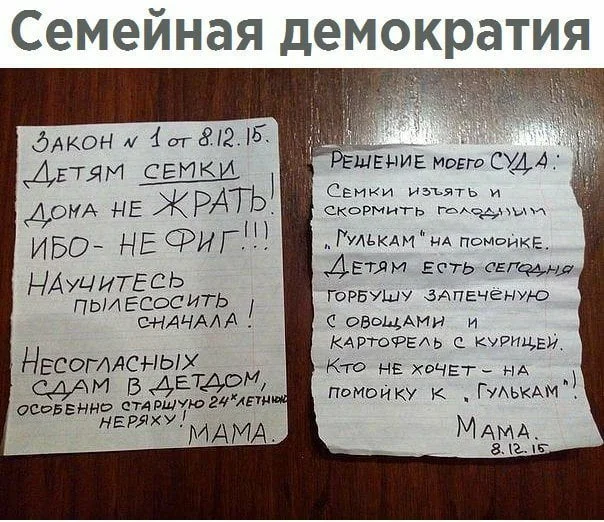 Семейная демократия
ЗАКОН № 1 от 8.12.15.
ДЕТЯМ СЕМКИ
ДОМА НЕ ЖРАТЬ!
ИБО - НЕ ФИГ!!!
НАУЧИТЕСЬ
ПЫЛЕСОСИТЬ
СНАЧАЛА!
НЕСОГЛАСНЫХ
СДАМ В ДЕТДОМ,
ОСОБЕННО СТАРШУЮ 24х ЛЕТНЮЮ
НЕРЯХУ!
МАМА.
РЕШЕНИЕ МОЕГО СУДА:
СЕМКИ ИЗЪЯТЬ И
СКОРМИТЬ ГОЛОДНЫМ
"ГУЛЬКАМ" НА ПОМОЙКЕ.
ДЕТЯМ ЕСТЬ СЕГОДНЯ
ГОРБУШУ ЗАПЕЧЁНУЮ
С ОВОЩАМИ И
КАРТОФЕЛЬ С КУРИЦЕЙ.
КТО НЕ ХОЧЕТ - НА
ПОМОЙКУ К "ГУЛЬКАМ"!
МАМА.
8.12.15